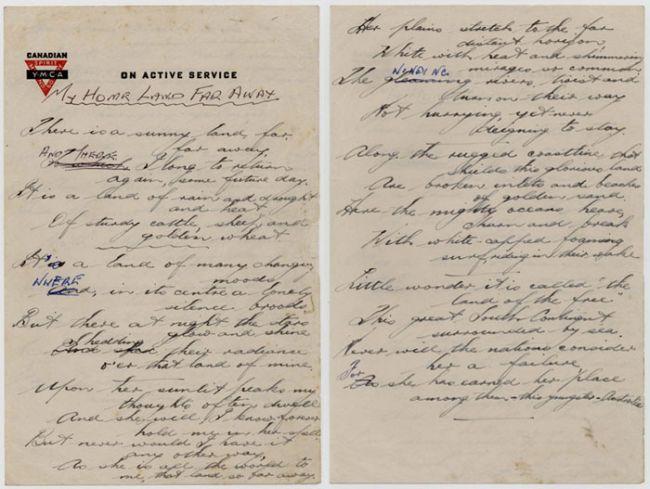 CANADIAN
SPIRIT
YMCA
ON ACTIVE SERVICE
MY HOME LAND FAR AWAY
There is a sunny land, far,
far away,
AND THERE I long to return
again, some future day.
It is a land of rain and drought
and heat
Of sturdy cattle, sheep and
golden wheat
It's a land of many changing
moods
WHERE in its centre a lonely
silence broods
But there at night the stars
glow and shine
Shedding their radiance
o'er that land of mine.
Upon her sunlit peaks my
thoughts often dwell
And she will, I know forever
hold me in her spell
But never would I have it
any other way,
As she is all the world to
me, that land so far away.
Her plains stretch to the far
distant horizon,
White with heat and shimmering
mirages so common.
The gleaming WINDING rivers, twist and
turn on their way
Not hurrying yet never
deigning to stay.
Along the rugged coastline that
shields this glorious land
Are broken inlets and beaches
of golden sand.
Here the mighty oceans heave,
churn and break
With white-capped foaming
surf, riding in their wake
Little wonder it is called "the
land of the free"
This great South Continent
surrounded by sea.
Never will the nations consider
her a failure
For As she has earned her place
among them - this young Australia